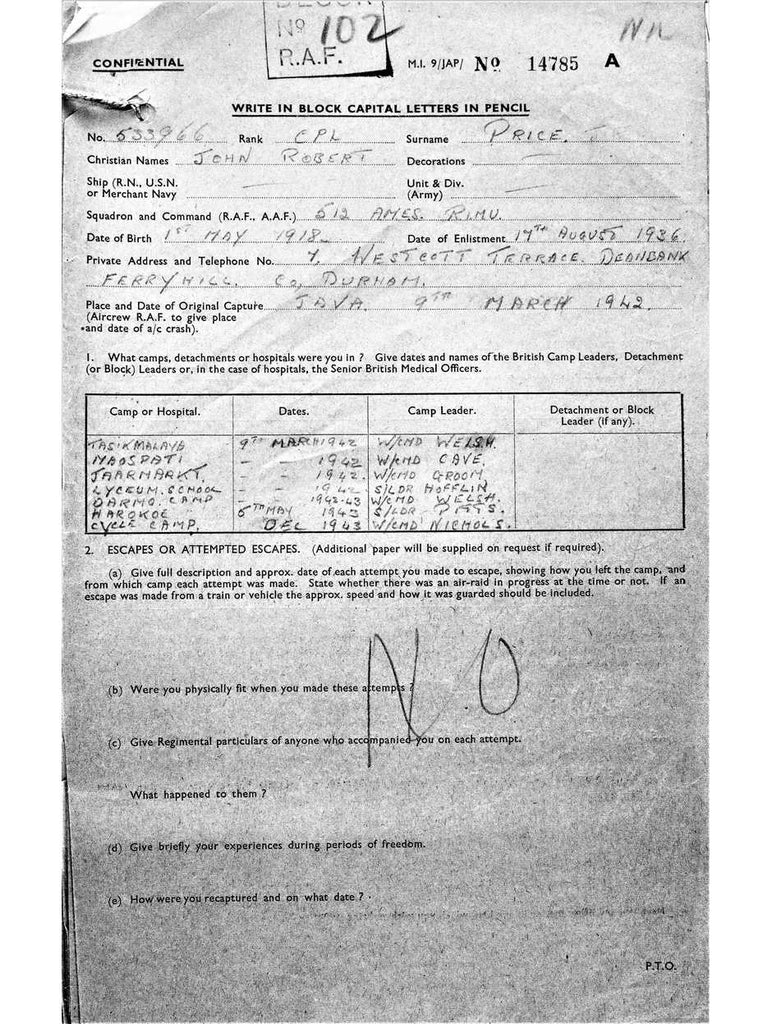 BLOCK
Nº 102
R.A.F.
NIL
CONFIDENTIAL
M.I. 9/JAP/ Nº 14785 A
WRITE IN BLOCK CAPITAL LETTERS IN PENCIL
No. 533966 Rank CPL Surname PRICE.
Christian Names JOHN ROBERT Decorations —
Ship (R.N., U.S.N. — Unit & Div. —
or Merchant Navy (Army)
Squadron and Command (R.A.F., A.A.F.) 512 AMES. R.I.M.U.
Date of Birth 1ST MAY 1918. Date of Enlistment 17TH AUGUST 1936.
Private Address and Telephone No. 7, WESTCOTT TERRACE. DEANBANK
FERRYHILL. Co, DURHAM.
Place and Date of Original Capture JAVA. 9TH MARCH 1942.
(Aircrew R.A.F. to give place
and date of a/c crash).
1. What camps, detachments or hospitals were you in ? Give dates and names of the British Camp Leaders, Detachment
(or Block) Leaders or, in the case of hospitals, the Senior British Medical Officers.
Camp or Hospital. Dates. Camp Leader. Detachment or Block
Leader (if any).
TASIKMALAYA 9TH MARCH 1942 W/CMD WELSH.
MAOSPATI - - 1942 W/CMD CAVE.
JAARMARKT. - - 1942. W/CMD GROOM
LYCEUM. SCHOOL - - 1942 S/LDR HOFFLIN
DARMO. CAMP - - 1942-43 W/CMD WELSH.
HAROKOE 5TH MAY 1943 S/LDR PITTS.
CYCLE CAMP. DEC 1943 W/CMD NICHOLS.
2. ESCAPES OR ATTEMPTED ESCAPES. (Additional paper will be supplied on request if required).
(a) Give full description and approx. date of each attempt you made to escape, showing how you left the camp, and
from which camp each attempt was made. State whether there was an air-raid in progress at the time or not. If an
escape was made from a train or vehicle the approx. speed and how it was guarded should be included.
NO
(b) Were you physically fit when you made these attempts ?
(c) Give Regimental particulars of anyone who accompanied you on each attempt.
What happened to them ?
(d) Give briefly your experiences during periods of freedom.
(e) How were you recaptured and on what date ?
P.T.O.